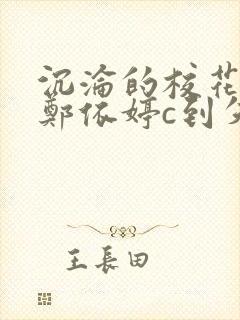 沉淪的校花
鄭依婷c到失
王長田